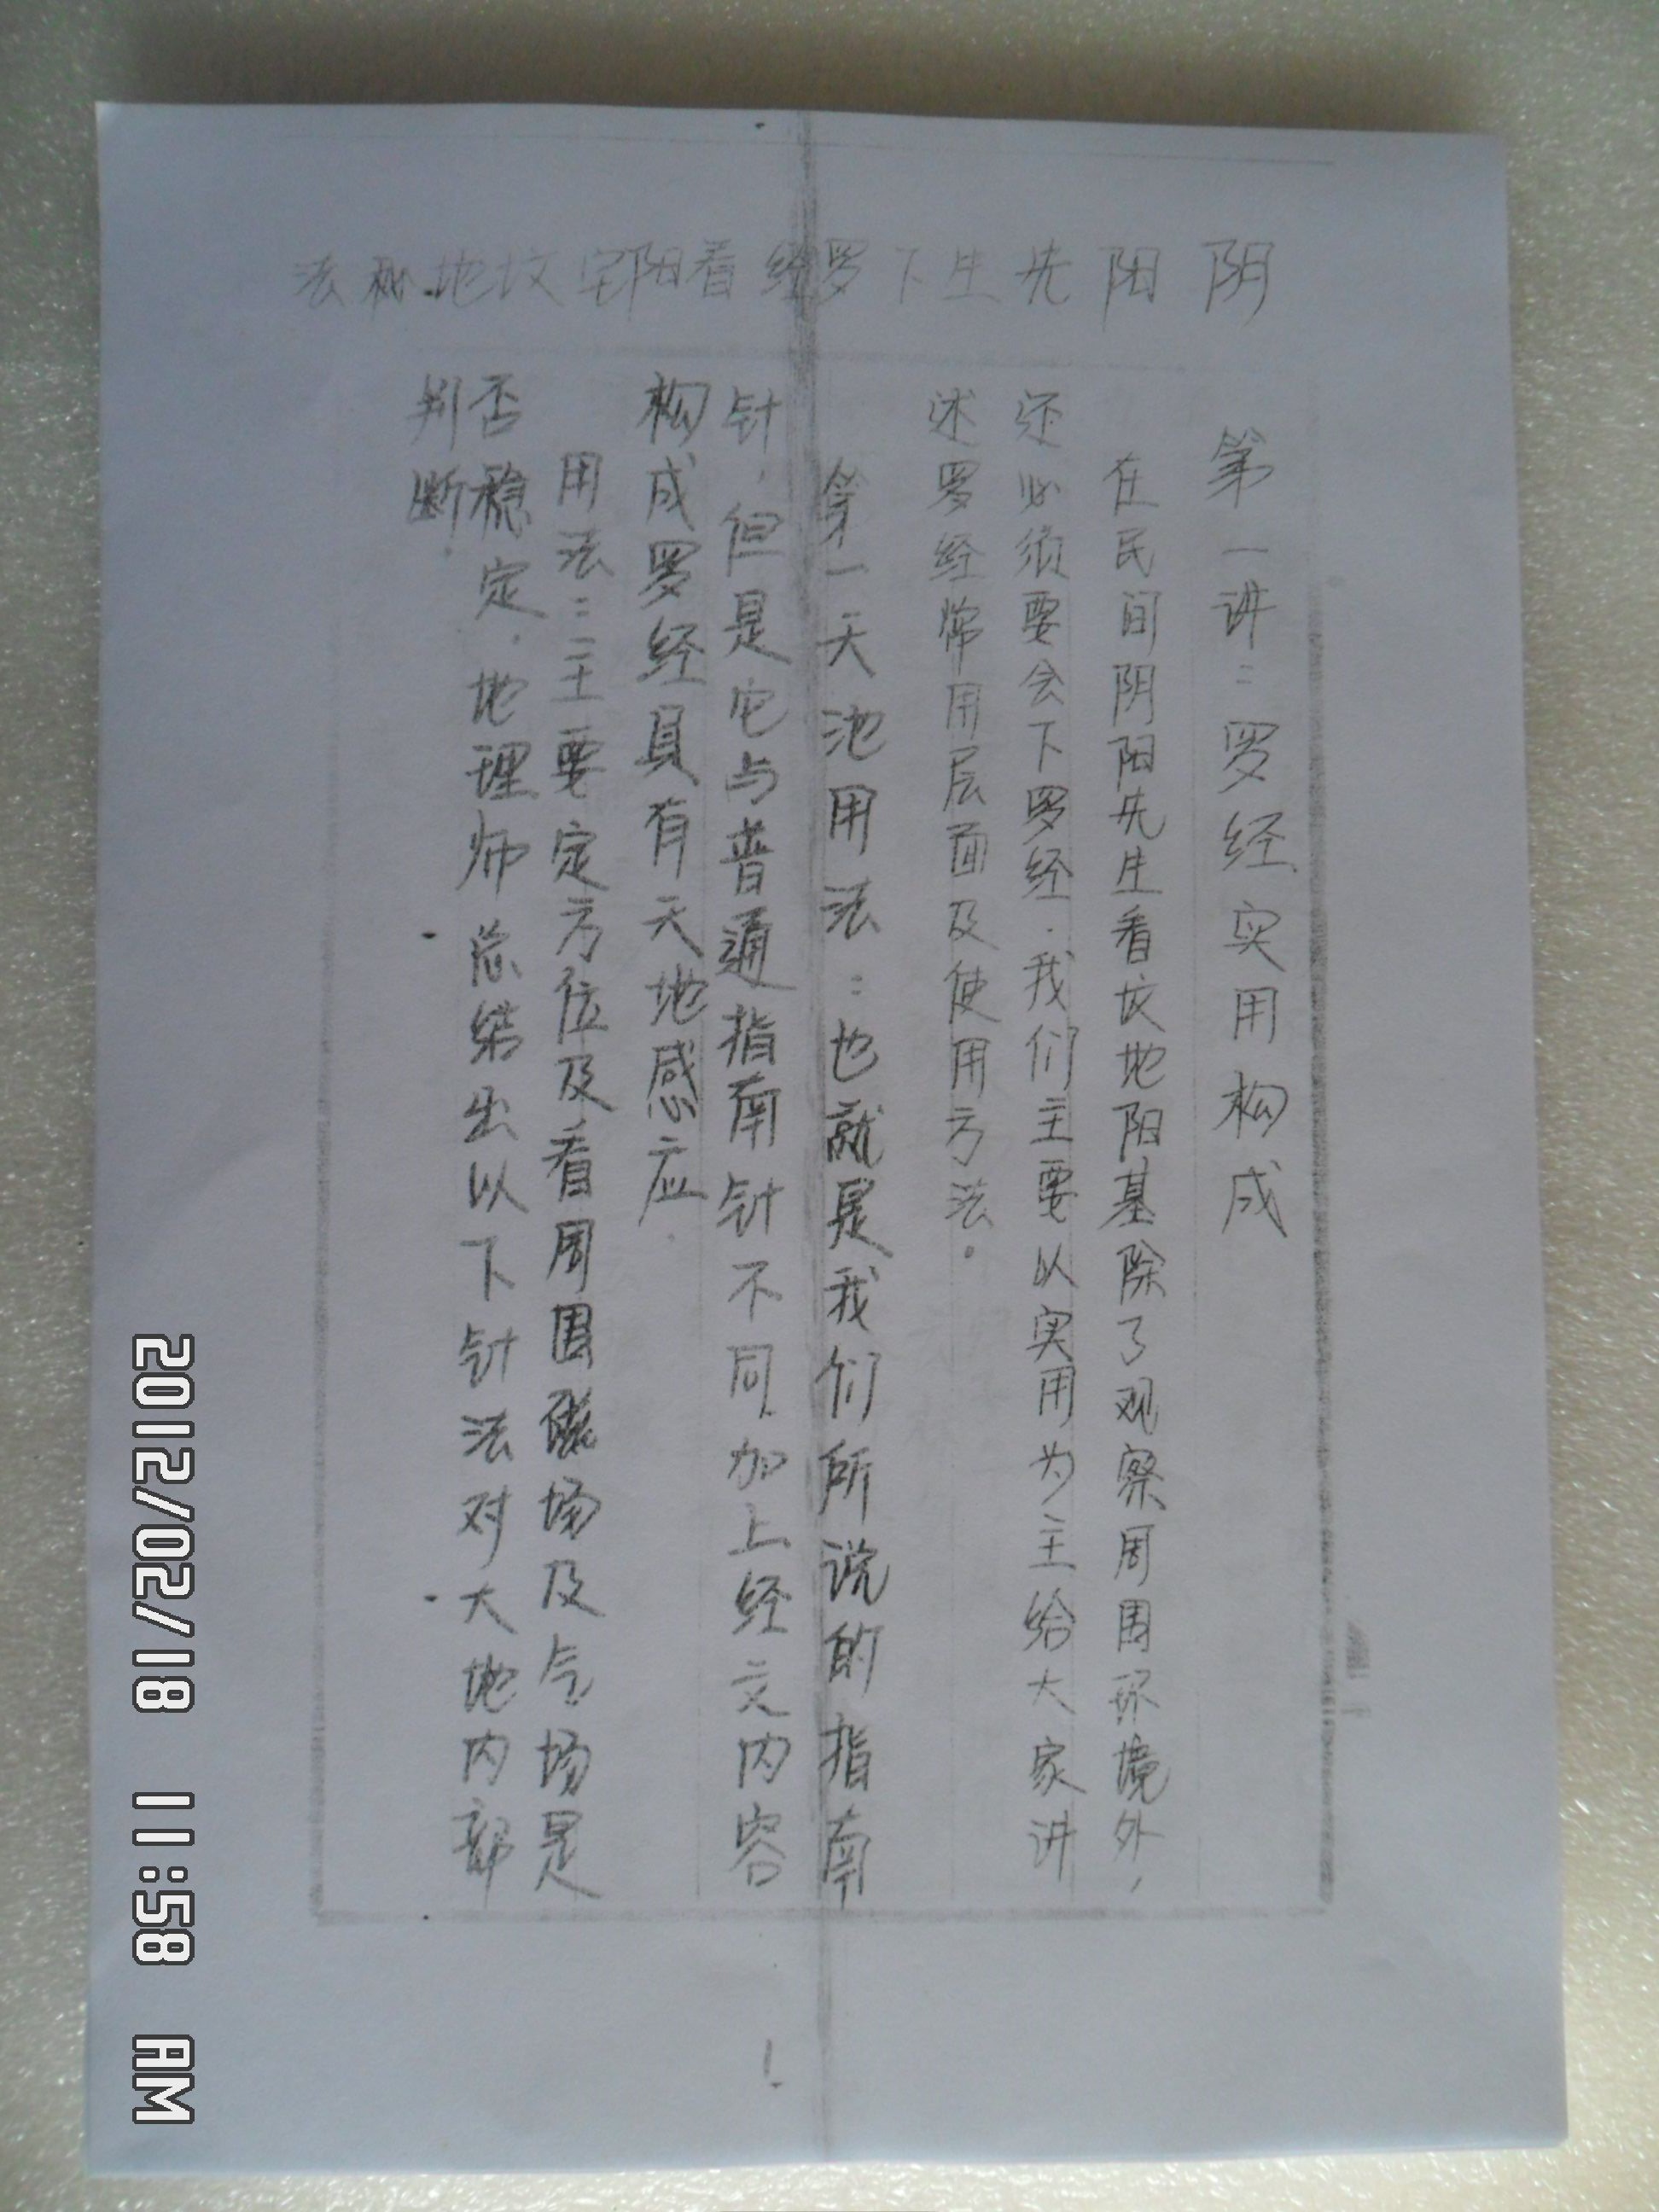 阴阳先生下罗经看阳宅坟地秘法
第一讲：罗经实用构成
在民间阴阳先生看坟地阳基除了观察周围环境外，
还必须要会下罗经．我们主要以实用为主给大家讲
述罗经常用层面及使用方法．
第一天池用法：也就是我们所说的指南
针，但是它与普通指南针不同．加上经文内容
构成罗经具有天地感应．
用法：主要定方位及看周围磁场及气场是
否稳定．地理师总结出以下针法对大地内部
判断．
1
2012/02/18 11:58 AM